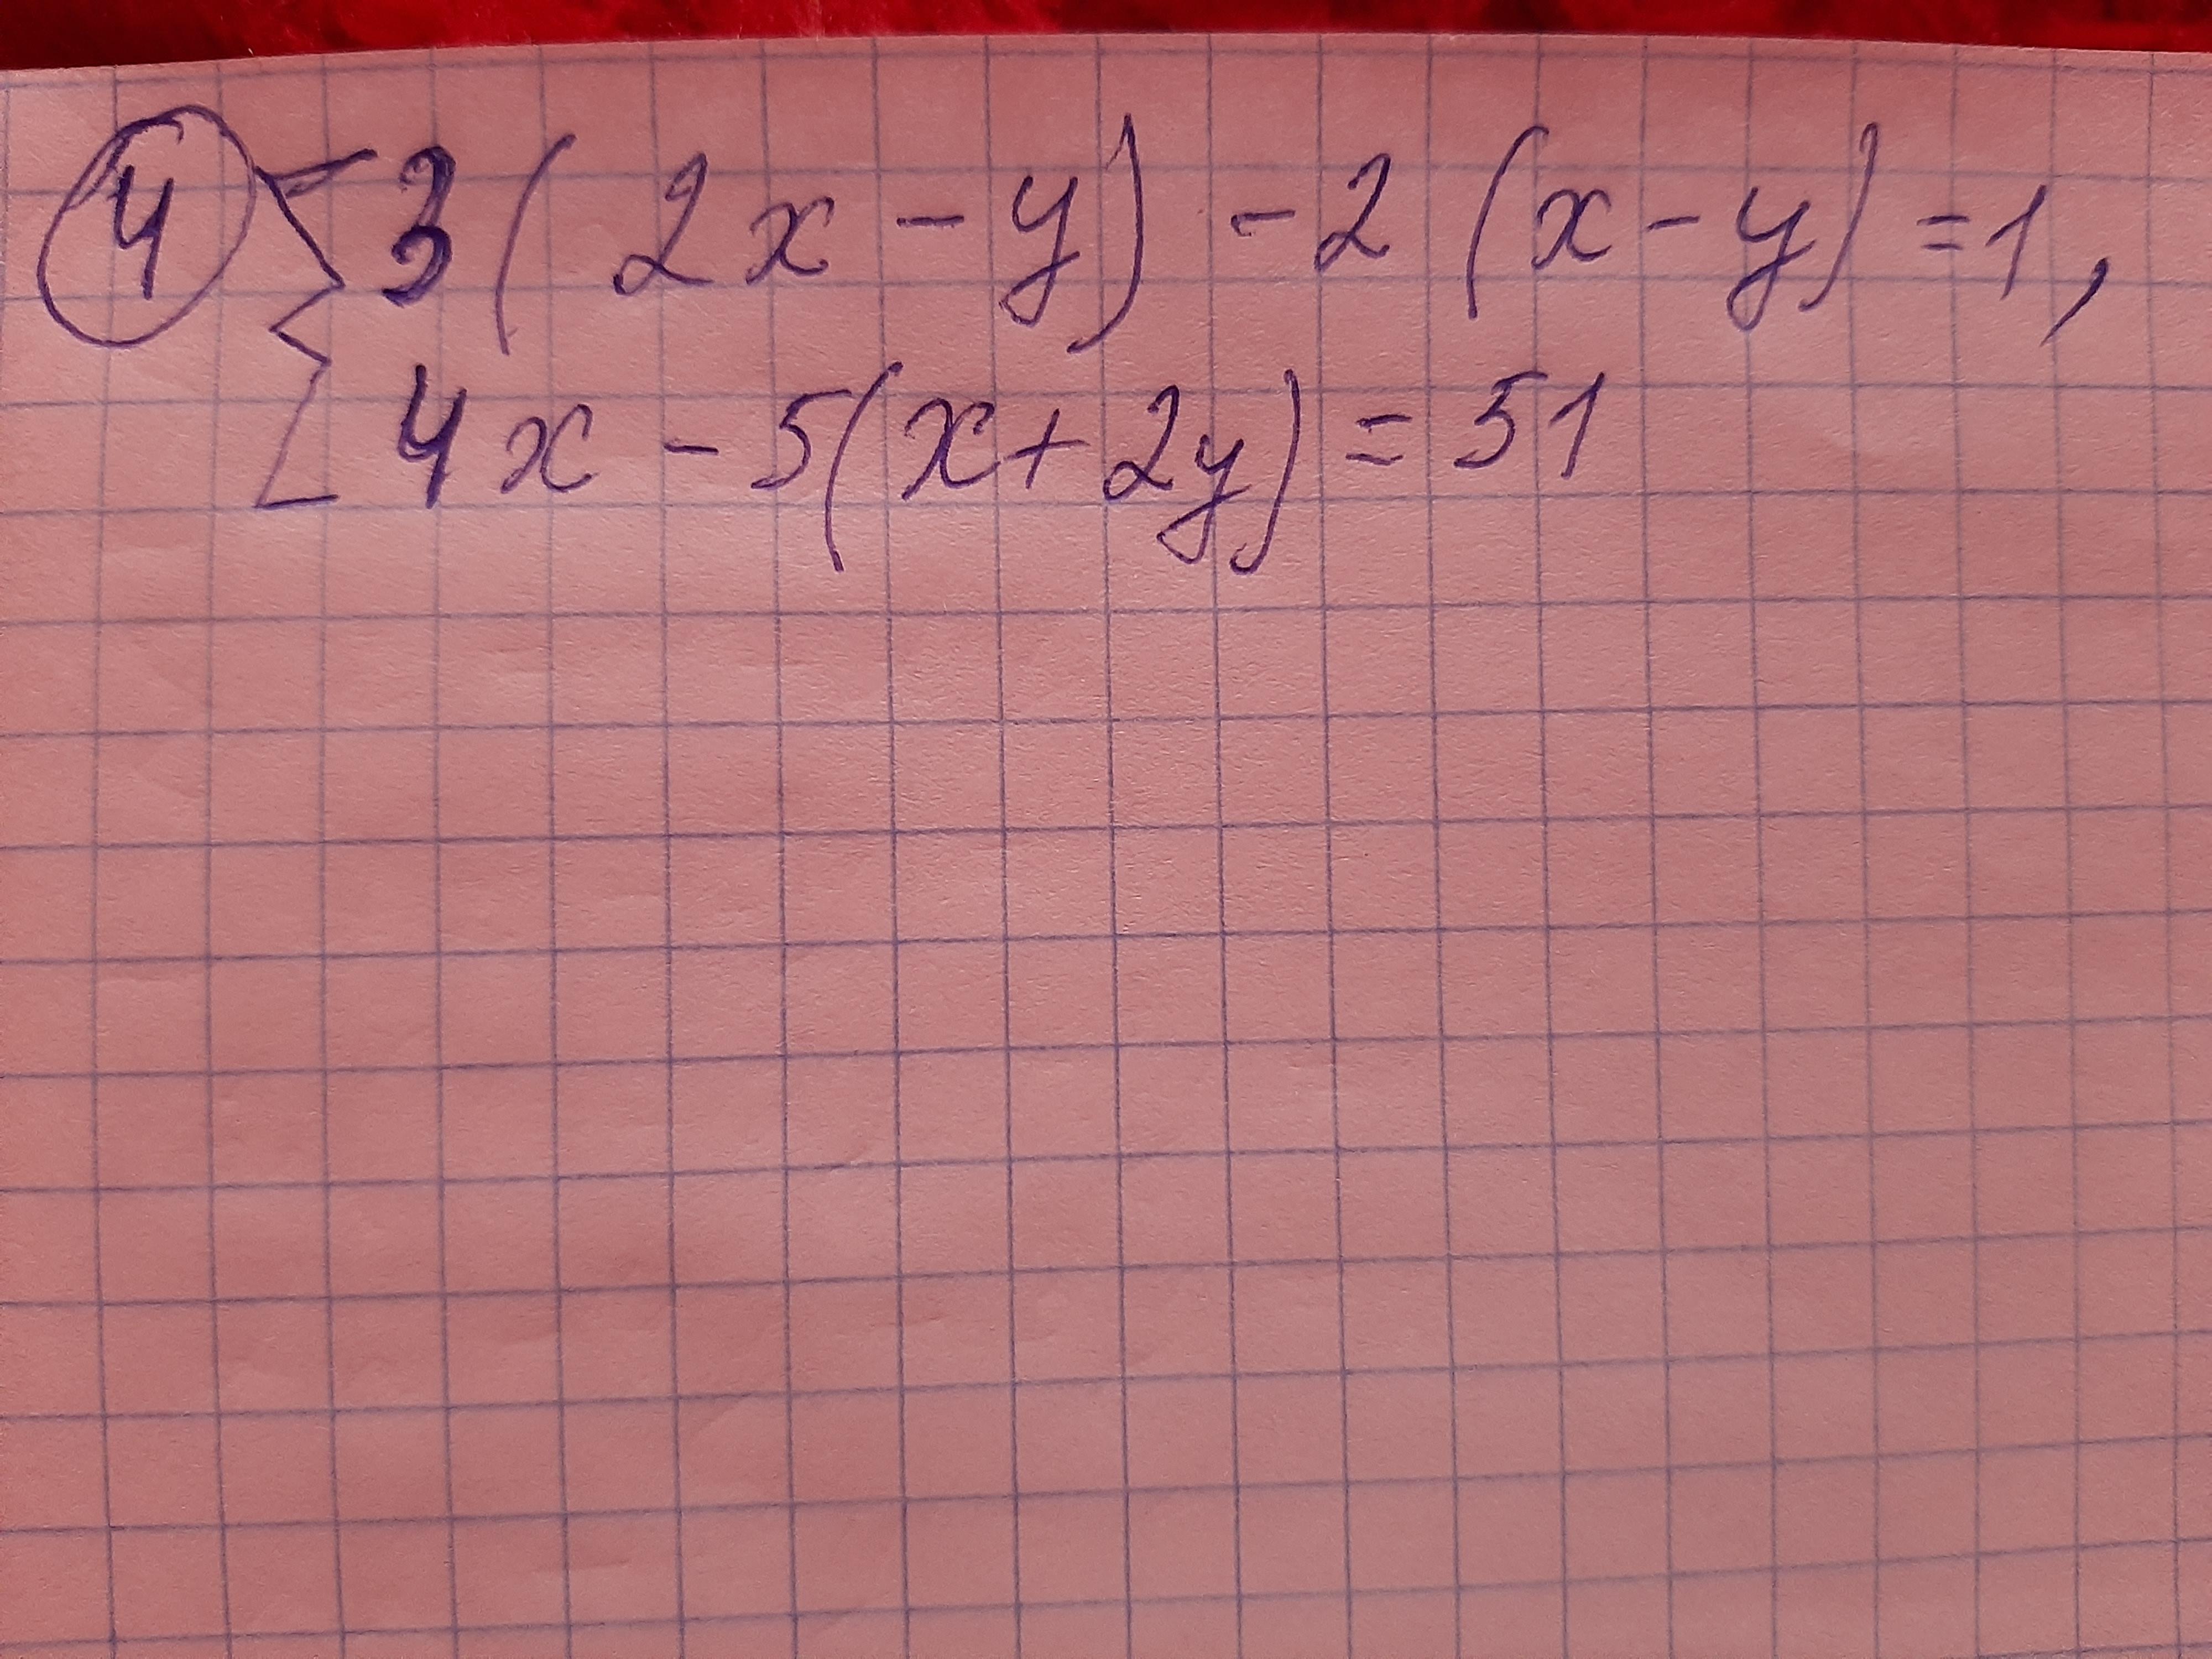 4 { 3(2x-y) -2(x-y)=1,
4x -5(x+2y)=51